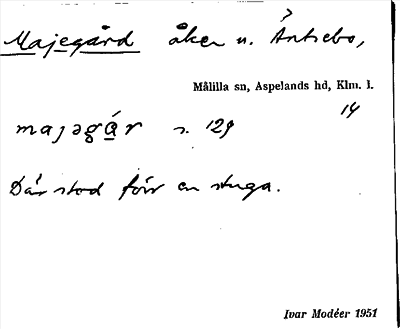 Majegård åker u. Äntsebo,
Målilla sn, Aspelands hd, Klm. l.
14
majəgár s. 129
Där stod förr en stuga.
Ivar Modéer 1951